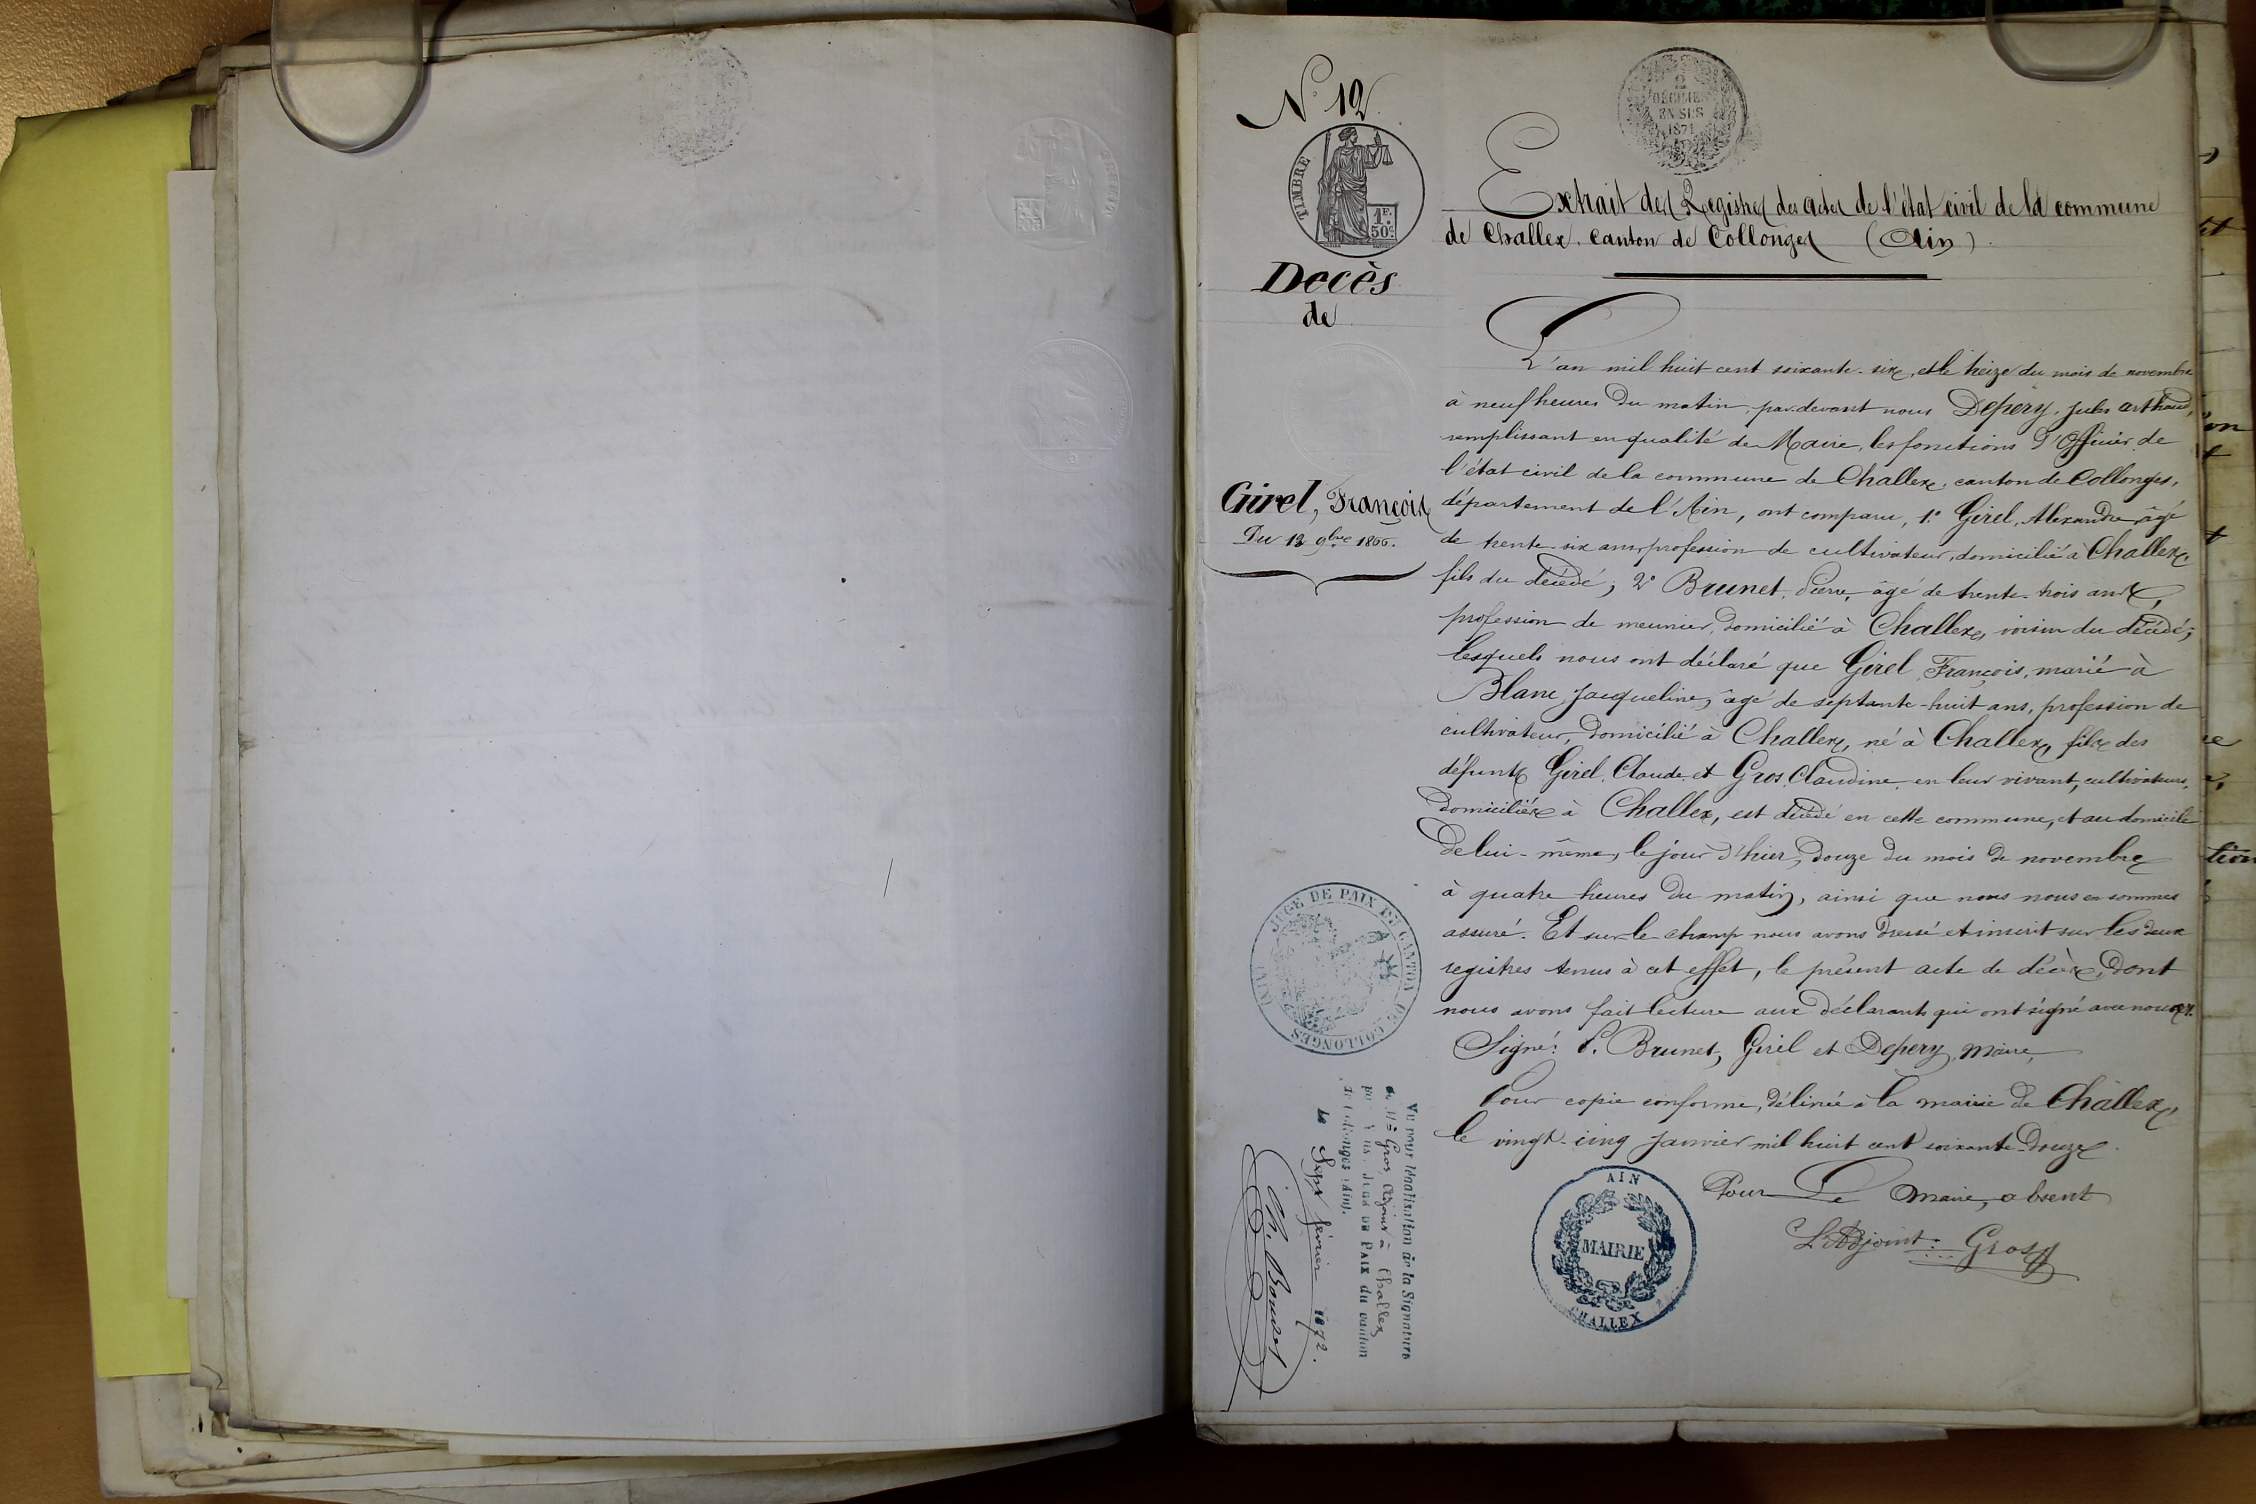 N° 12
2
DÉCIMES
EN SUS
1871
TIMBRE
1F.
50c.
Extrait des Registres des actes de l'état civil de la commune
de Challex. canton de Collonges (Ain).
Decès
de
L'an mil huit cent soixante-six, et le treize du mois de novembre
à neuf heures du matin, par devant nous Depery, Jules Arthaud,
remplissant en qualité de Maire, les fonctions d'Officier de
l'état civil de la commune de Challex, canton de Collonges,
Girel, François
département de l'Ain, ont comparu, 1° Girel, Alexandre, âgé
Du 12 9bre 1866.
de trente-six ans, profession de cultivateur, domicilié à Challex,
fils du décédé; 2° Brunet, Pierre, âgé de trente-trois ans,
profession de meunier, domicilié à Challex, voisin du décédé;
lesquels nous ont déclaré que Girel François, marié à
Blanc, Jacqueline, âgé de septante-huit ans, profession de
cultivateur, domicilié à Challex, né à Challex, fils des
défunts Girel, Claude et Gros, Claudine, en leur vivant, cultivateurs,
domiciliés à Challex, est décédé en cette commune, et au domicile
de lui-même, le jour d'hier, douze du mois de novembre
à quatre heures du matin, ainsi que nous nous en sommes
assuré. Et sur le champ nous avons dressé et inscrit sur les deux
registres tenus à cet effet, le présent acte de décès, dont
nous avons fait lecture aux déclarants qui ont signé avec nous.
Signé: P. Brunet, Girel et Depery, Maire,
Pour copie conforme, délivrée à la mairie de Challex,
le vingt-cinq Janvier mil huit cent soixante-douze.
Pour Le Maire, absent
L'Adjoint: Gros
JUGE DE PAIX DU CANTON DE COLLONGES (AIN)
Vu pour légalisation de la Signature
de Mr Gros, adjoint à Challex
par Nous, JUGE DE PAIX du canton
de Collonges (Ain).
Le Sept février 1872.
Ch. Bouvet
AIN
MAIRIE
CHALLEX